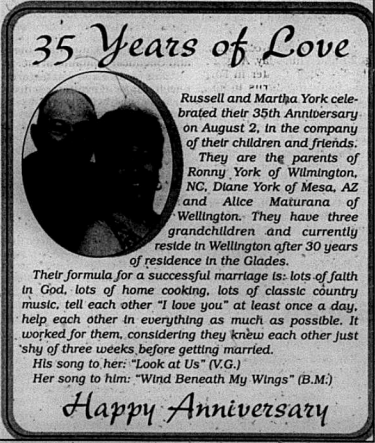 35 Years of Love
Russell and Martha York cele-
brated their 35th Anniversary
on August 2, in the company
of their children and friends.
They are the parents of
Ronny York of Wilmington,
NC, Diane York of Mesa, AZ
and Alice Maturana of
Wellington. They have three
grandchildren and currently
reside in Wellington after 30 years
of residence in the Glades.
Their formula for a successful marriage is: lots of faith
in God, lots of home cooking, lots of classic country
music, tell each other "I love you" at least once a day,
help each other in everything as much as possible. It
worked for them, considering they knew each other just
shy of three weeks before getting married.
His song to her: "Look at Us" (V.G.)
Her song to him: "Wind Beneath My Wings" (B.M.)
Happy Anniversary